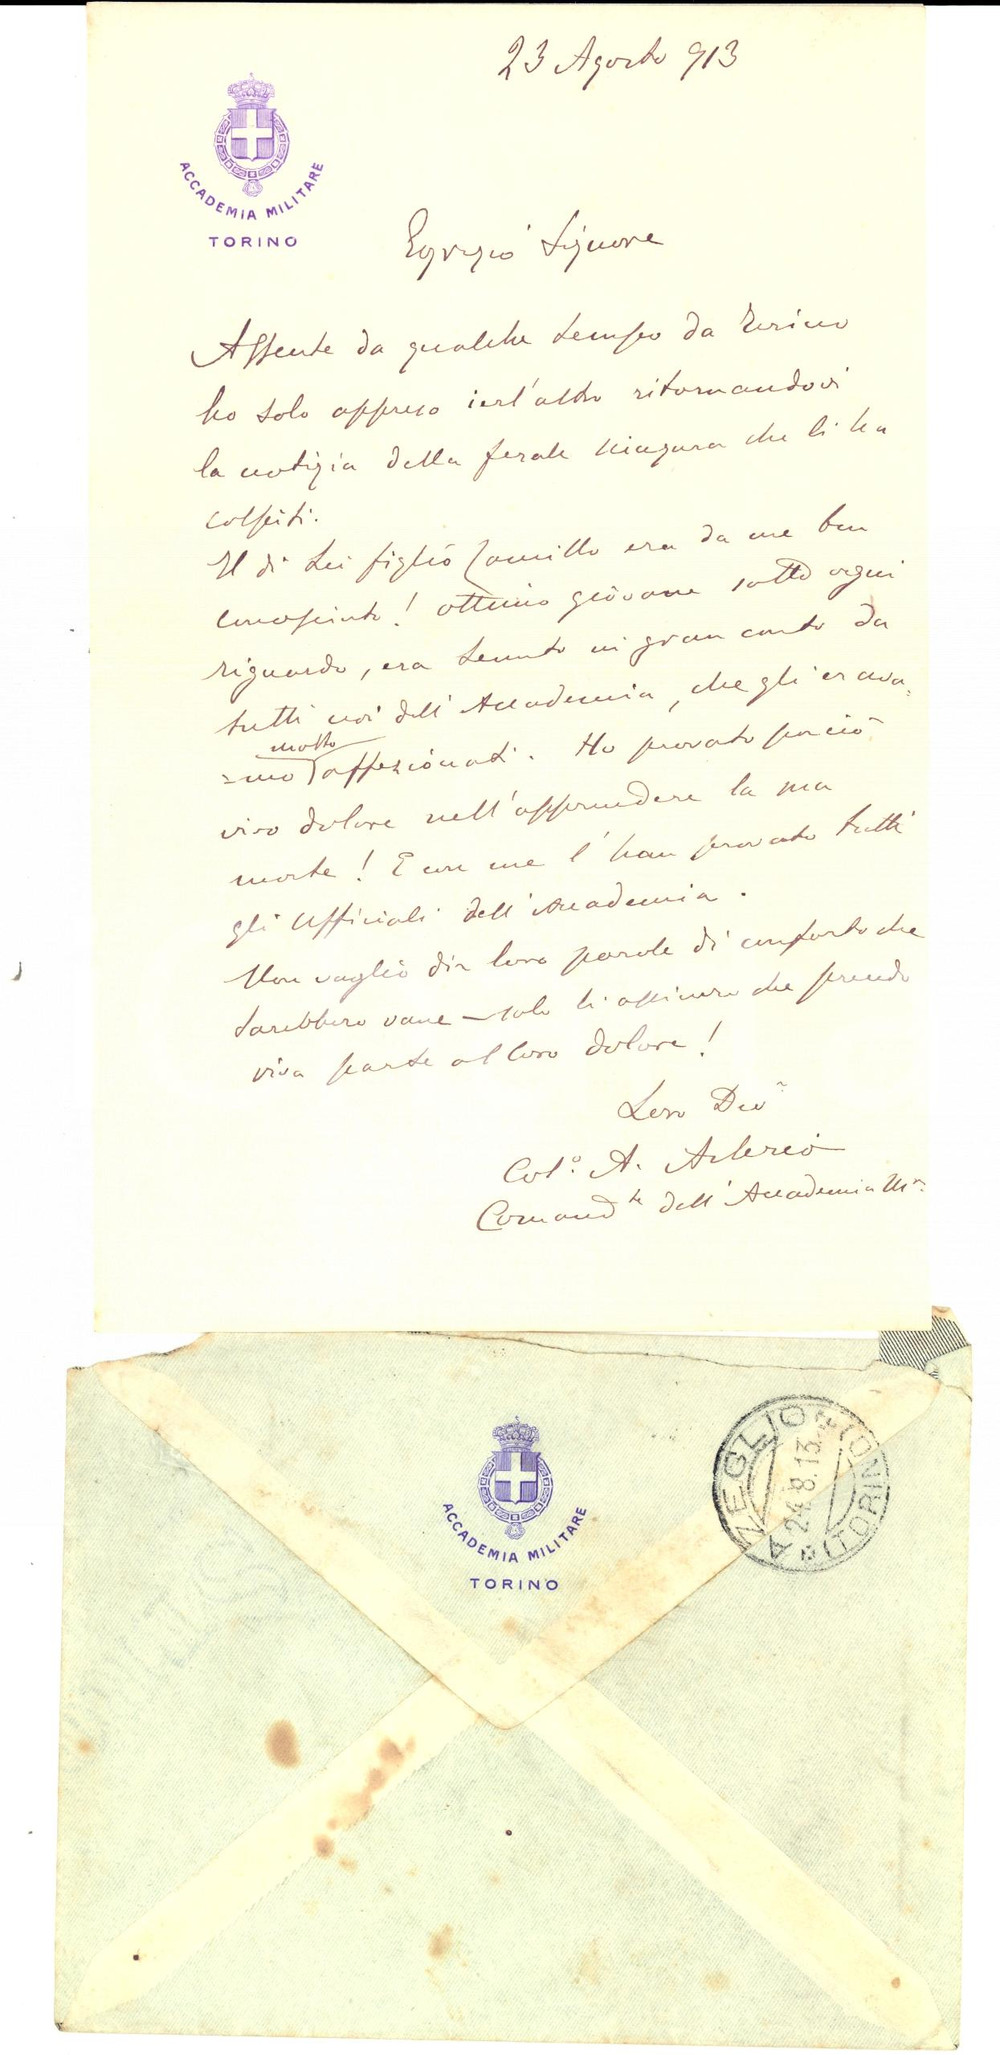 23 Agosto 913
ACCADEMIA MILITARE
TORINO
Egregio Signore
Assente da qualche tempo da Torino
ho solo appreso ierl'altro ritornandovi
la notizia della ferale sciagura che li ha
colpiti.
Il di Lei figlio Camillo era da me ben
conosciuto! ottimo giovane sotto ogni
riguardo, era tenuto in gran conto da
tutti noi dell'Accademia, che gli erava=
=mo molto affezionati. Ho provato perciò
vivo dolore nell'apprendere la sua
morte! E con me l'han provato tutti
gli Ufficiali dell'Accademia.
Non voglio dir loro parole di conforto che
sarebbero vane – solo li assicuro che prendo
viva parte al loro dolore!
Loro Devo
Colo. A.
Comandte dell'Accademia Mre
ACCADEMIA MILITARE
TORINO
AZEGLIO (TORINO)
24.8.13